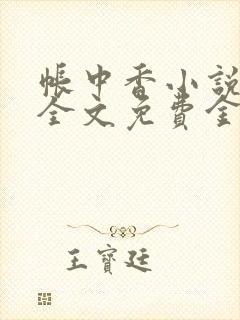 帳中香小說
全文免費全
王寶廷